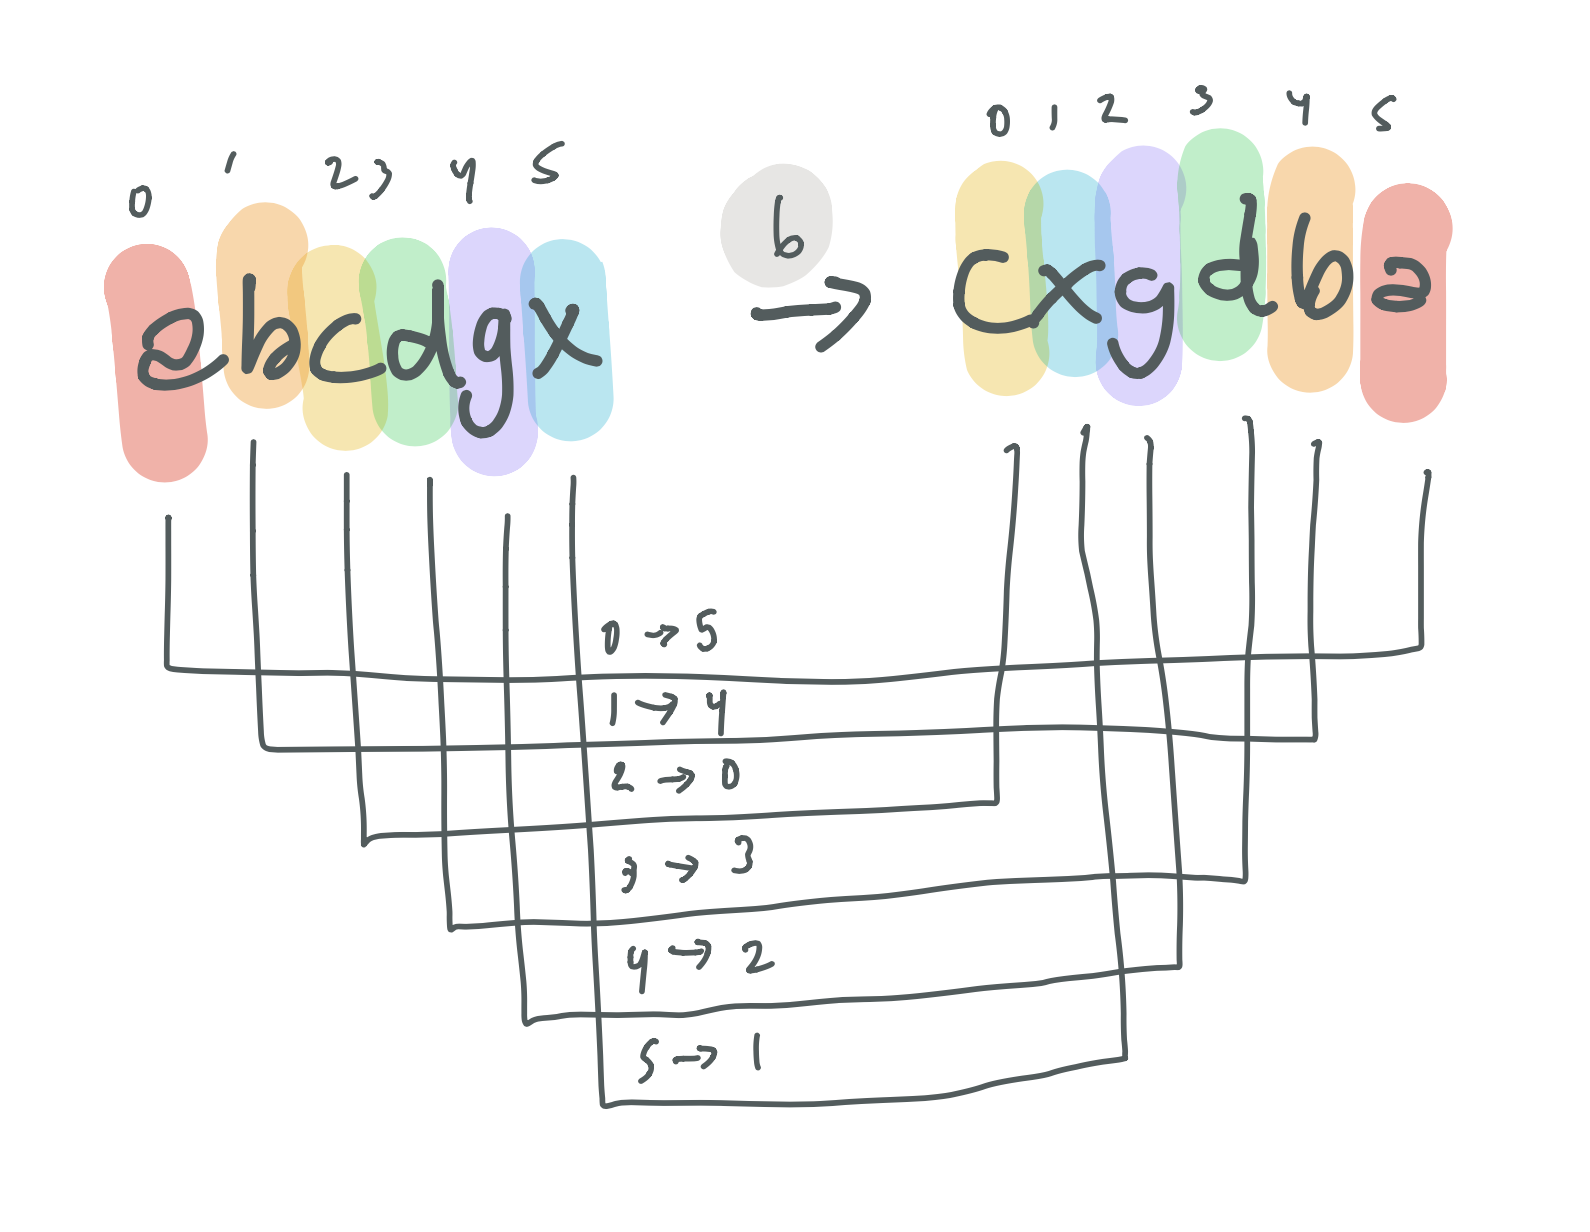 0 1 2 3 4 5
abcdgx
b
→
0 1 2 3 4 5
cxgdba
0 → 5
1 → 4
2 → 0
3 → 3
4 → 2
5 → 1